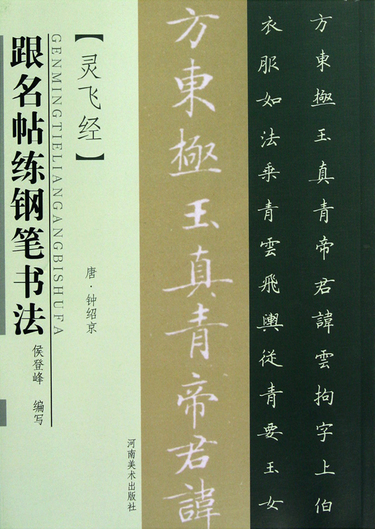 跟名帖练钢笔书法
GENMINGTIELIANGANGBISHUFA
【灵飞经】
唐·钟绍京
侯登峰 编写
河南美术出版社
方東極玉真青帝君諱
方東極玉真青帝君諱雲拘字上伯
衣服如法乘青雲飛輿從青要玉女